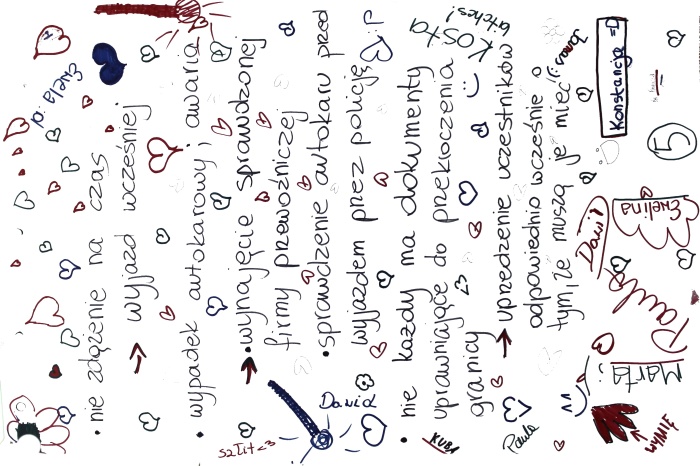 • nie zdążenie na czas
→ wyjazd wcześniej
• wypadek autokarowy; awaria
→ • wynajęcie sprawdzonej
firmy przewoźniczej
• sprawdzenie autokaru przed
wyjazdem przez policję
• nie każdy ma dokumenty
uprawniające do przekroczenia
granicy
→ uprzedzenie uczestników
odpowiednio wcześnie o
tym, że muszą je mieć
Ewela :D
Kosta
bitches!
Konstancja =D
5
Ewelina
Dawid
Paula
Marta :)
WYMIĘ
Paula
KUBA
Dawid
szlit <3